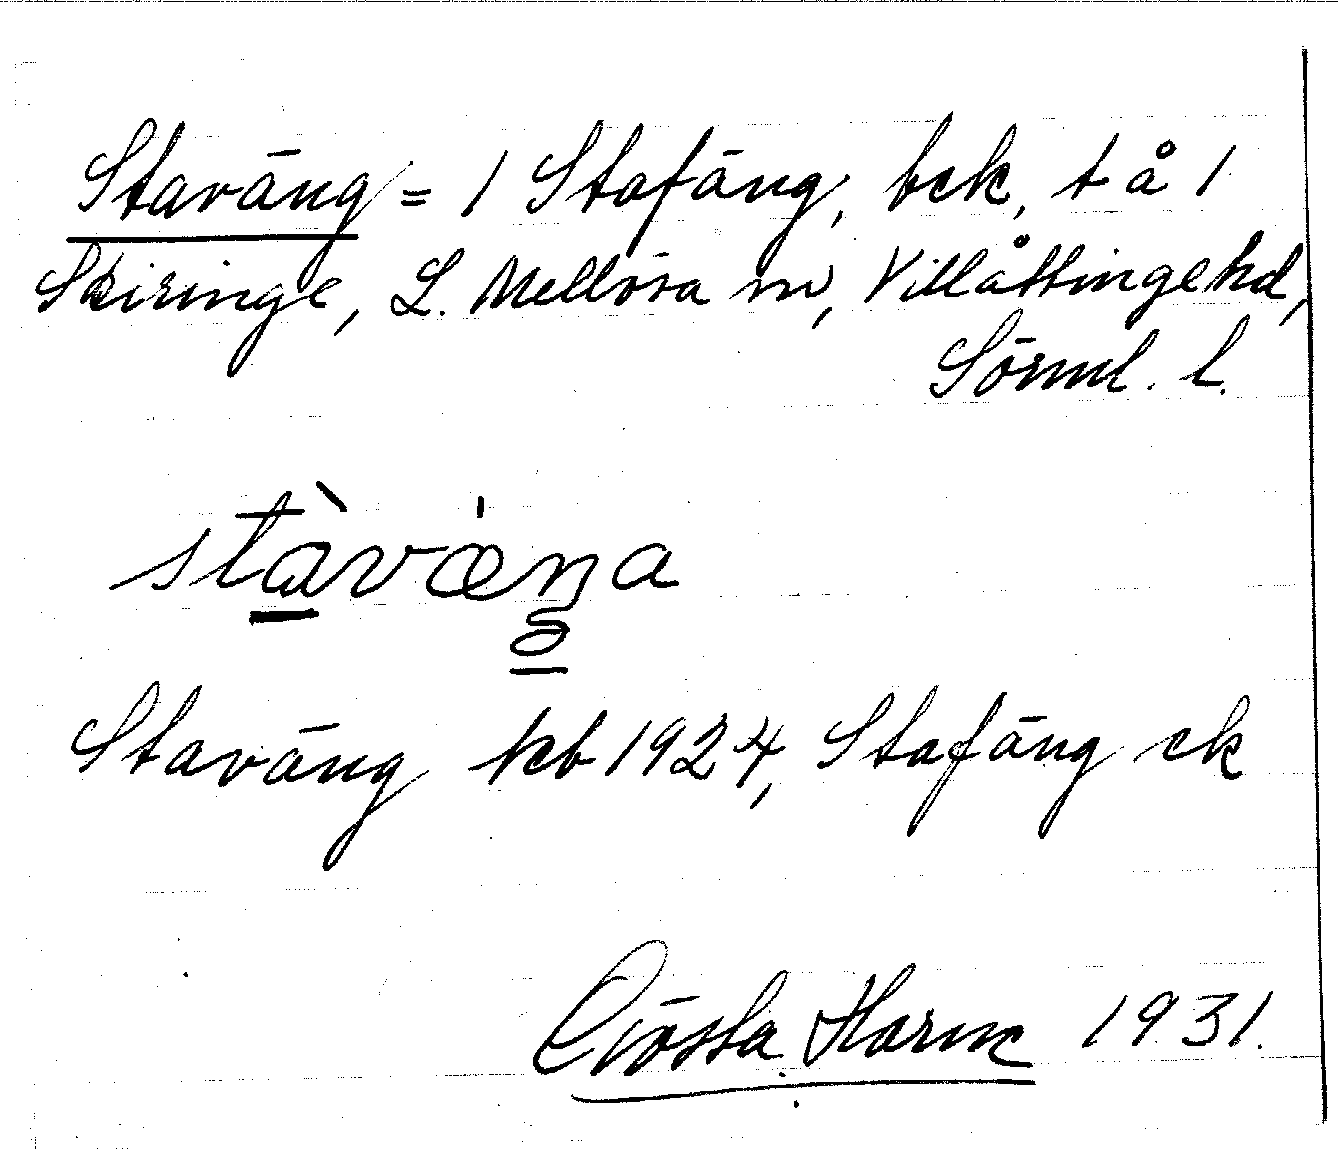 Staväng = 1 Stafäng, bck, t å 1
Skiringe, L. Mellösa sn, Villåttingehd,
Sörml. l.
stàvæŋa
Staväng kb 1924, Stafäng ek
Gösta Harne 1931.